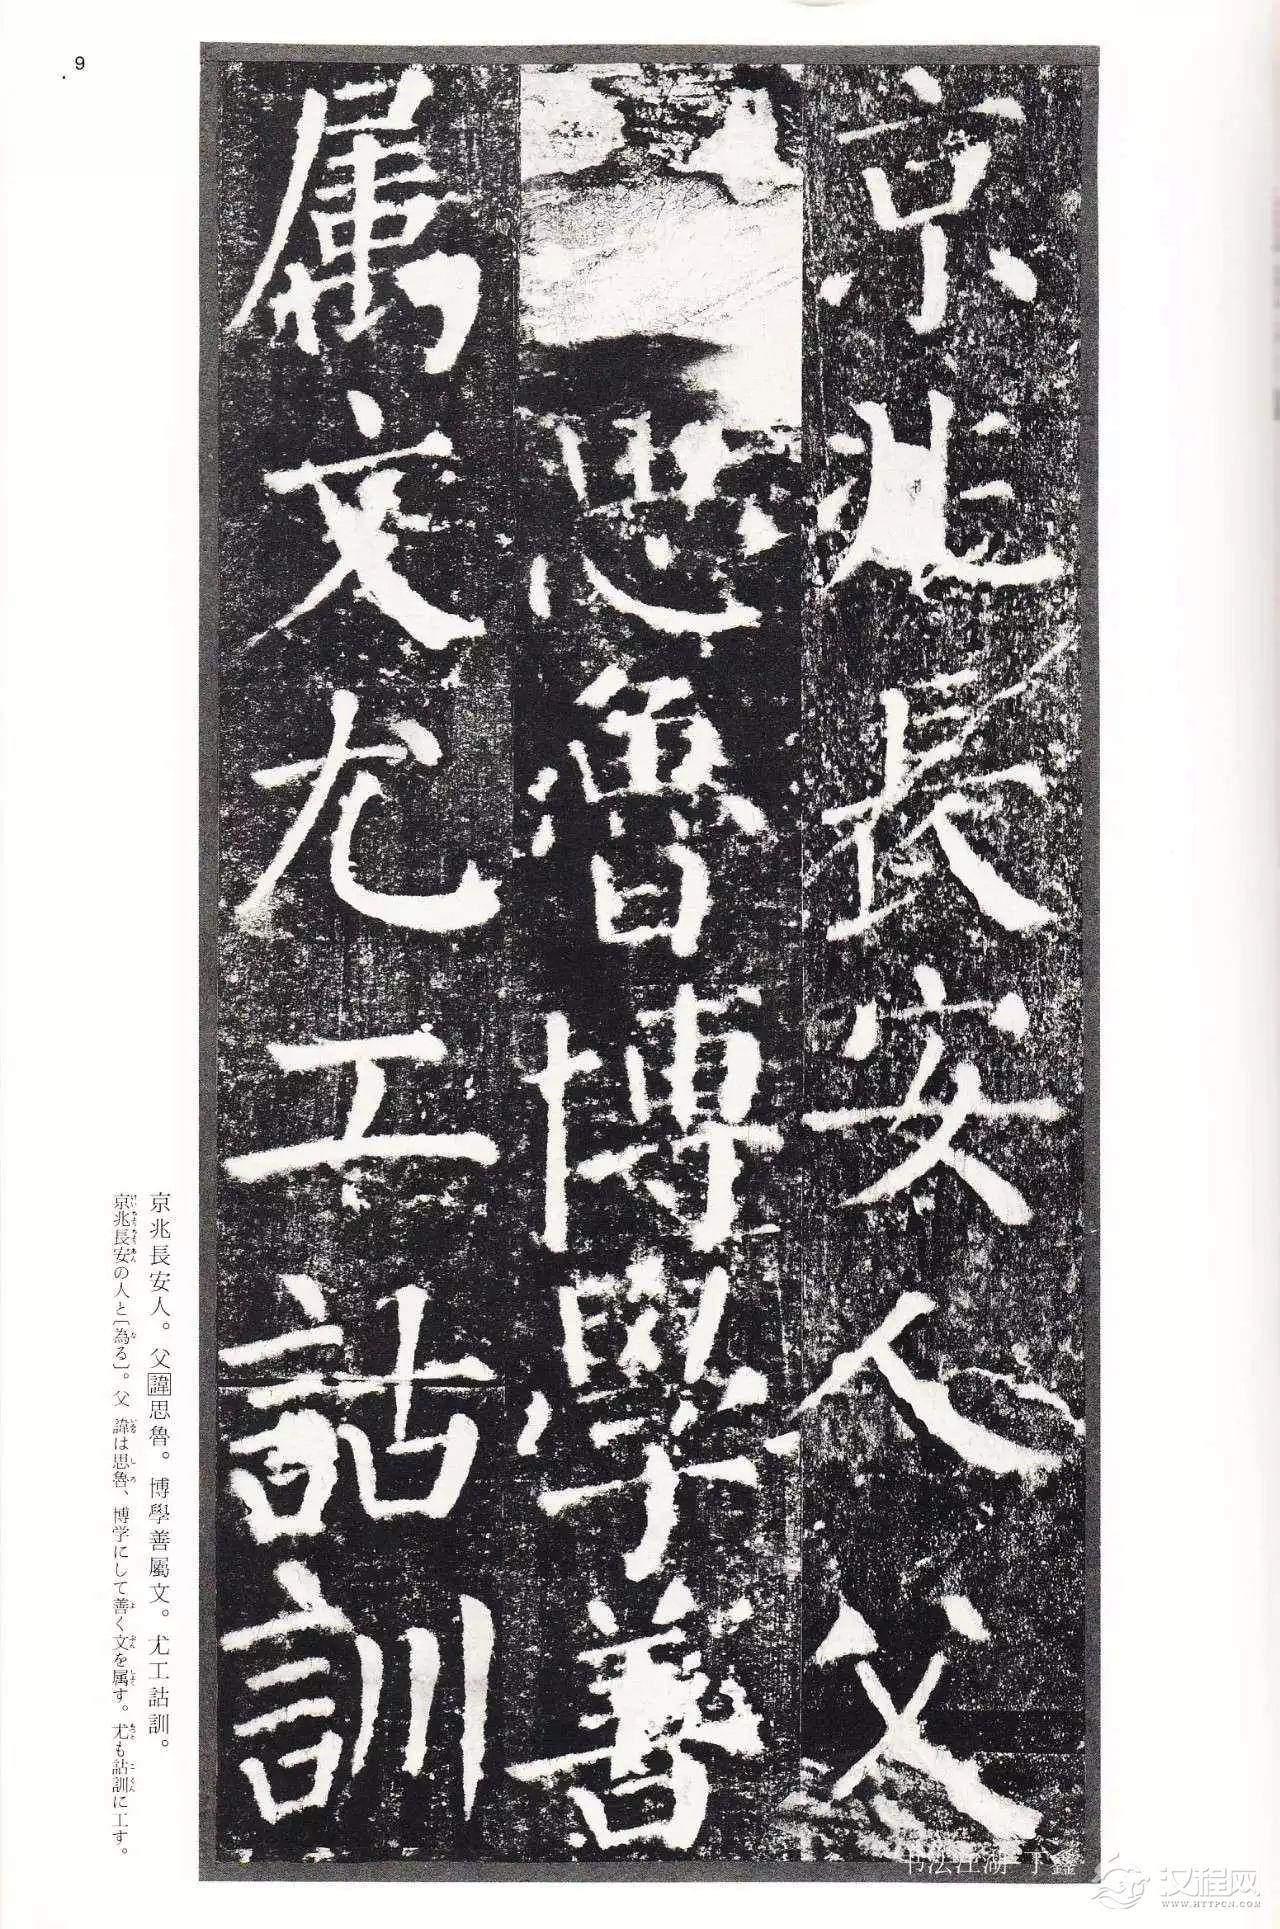 9
京兆長安人父
思魯博學善
属文尤工詁訓
京兆長安人。父諱思魯。博學善屬文。尤工詁訓。
京兆長安の人と〔為る〕。父諱は思魯、博学にして善く文を属す。尤も詁訓に工す。
书法江湖 丁鑫
汉程网
WWW.HTTPCN.COM